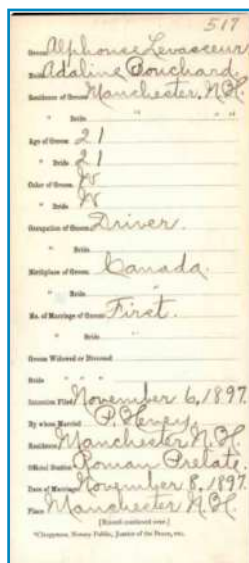 517
Groom, Alphonse Levasseur
Bride, Adaline Bouchard.
Residence of Groom, Manchester. N.H.
" Bride, " " "
Age of Groom, 21
" Bride, 21
Color of Groom, W
" Bride, W
Occupation of Groom, Driver.
" Bride,
Birthplace of Groom, Canada.
" Bride, "
No. of Marriage of Groom, First.
" Bride, "
Groom Widowed or Divorced
Bride " " "
Intention Filed, November 6, 1897.
By whom Married P. Hevey
Residence, Manchester N.H.
Official Station, Roman Prelate.
Date of Marriage, November 8, 1897.
Place, Manchester N.H.
[Record continued over.]
*Clergyman, Notary Public, Justice of the Peace, etc.